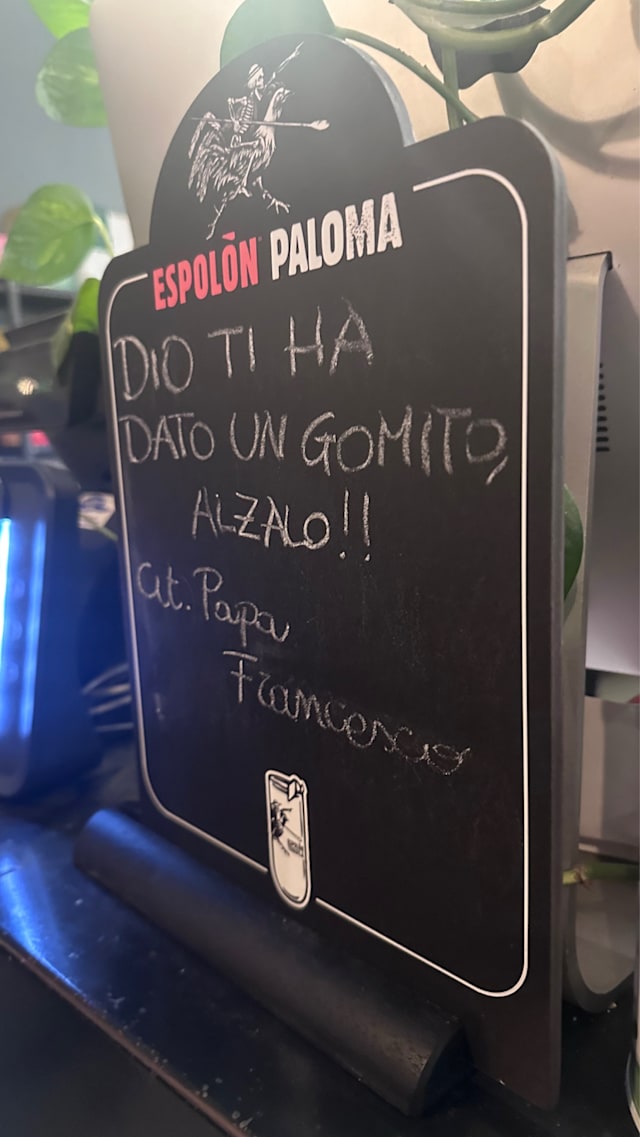 ESPOLÒN PALOMA
DIO TI HA
DATO UN GOMITO,
ALZALO!!
cit. Papa
Francesco